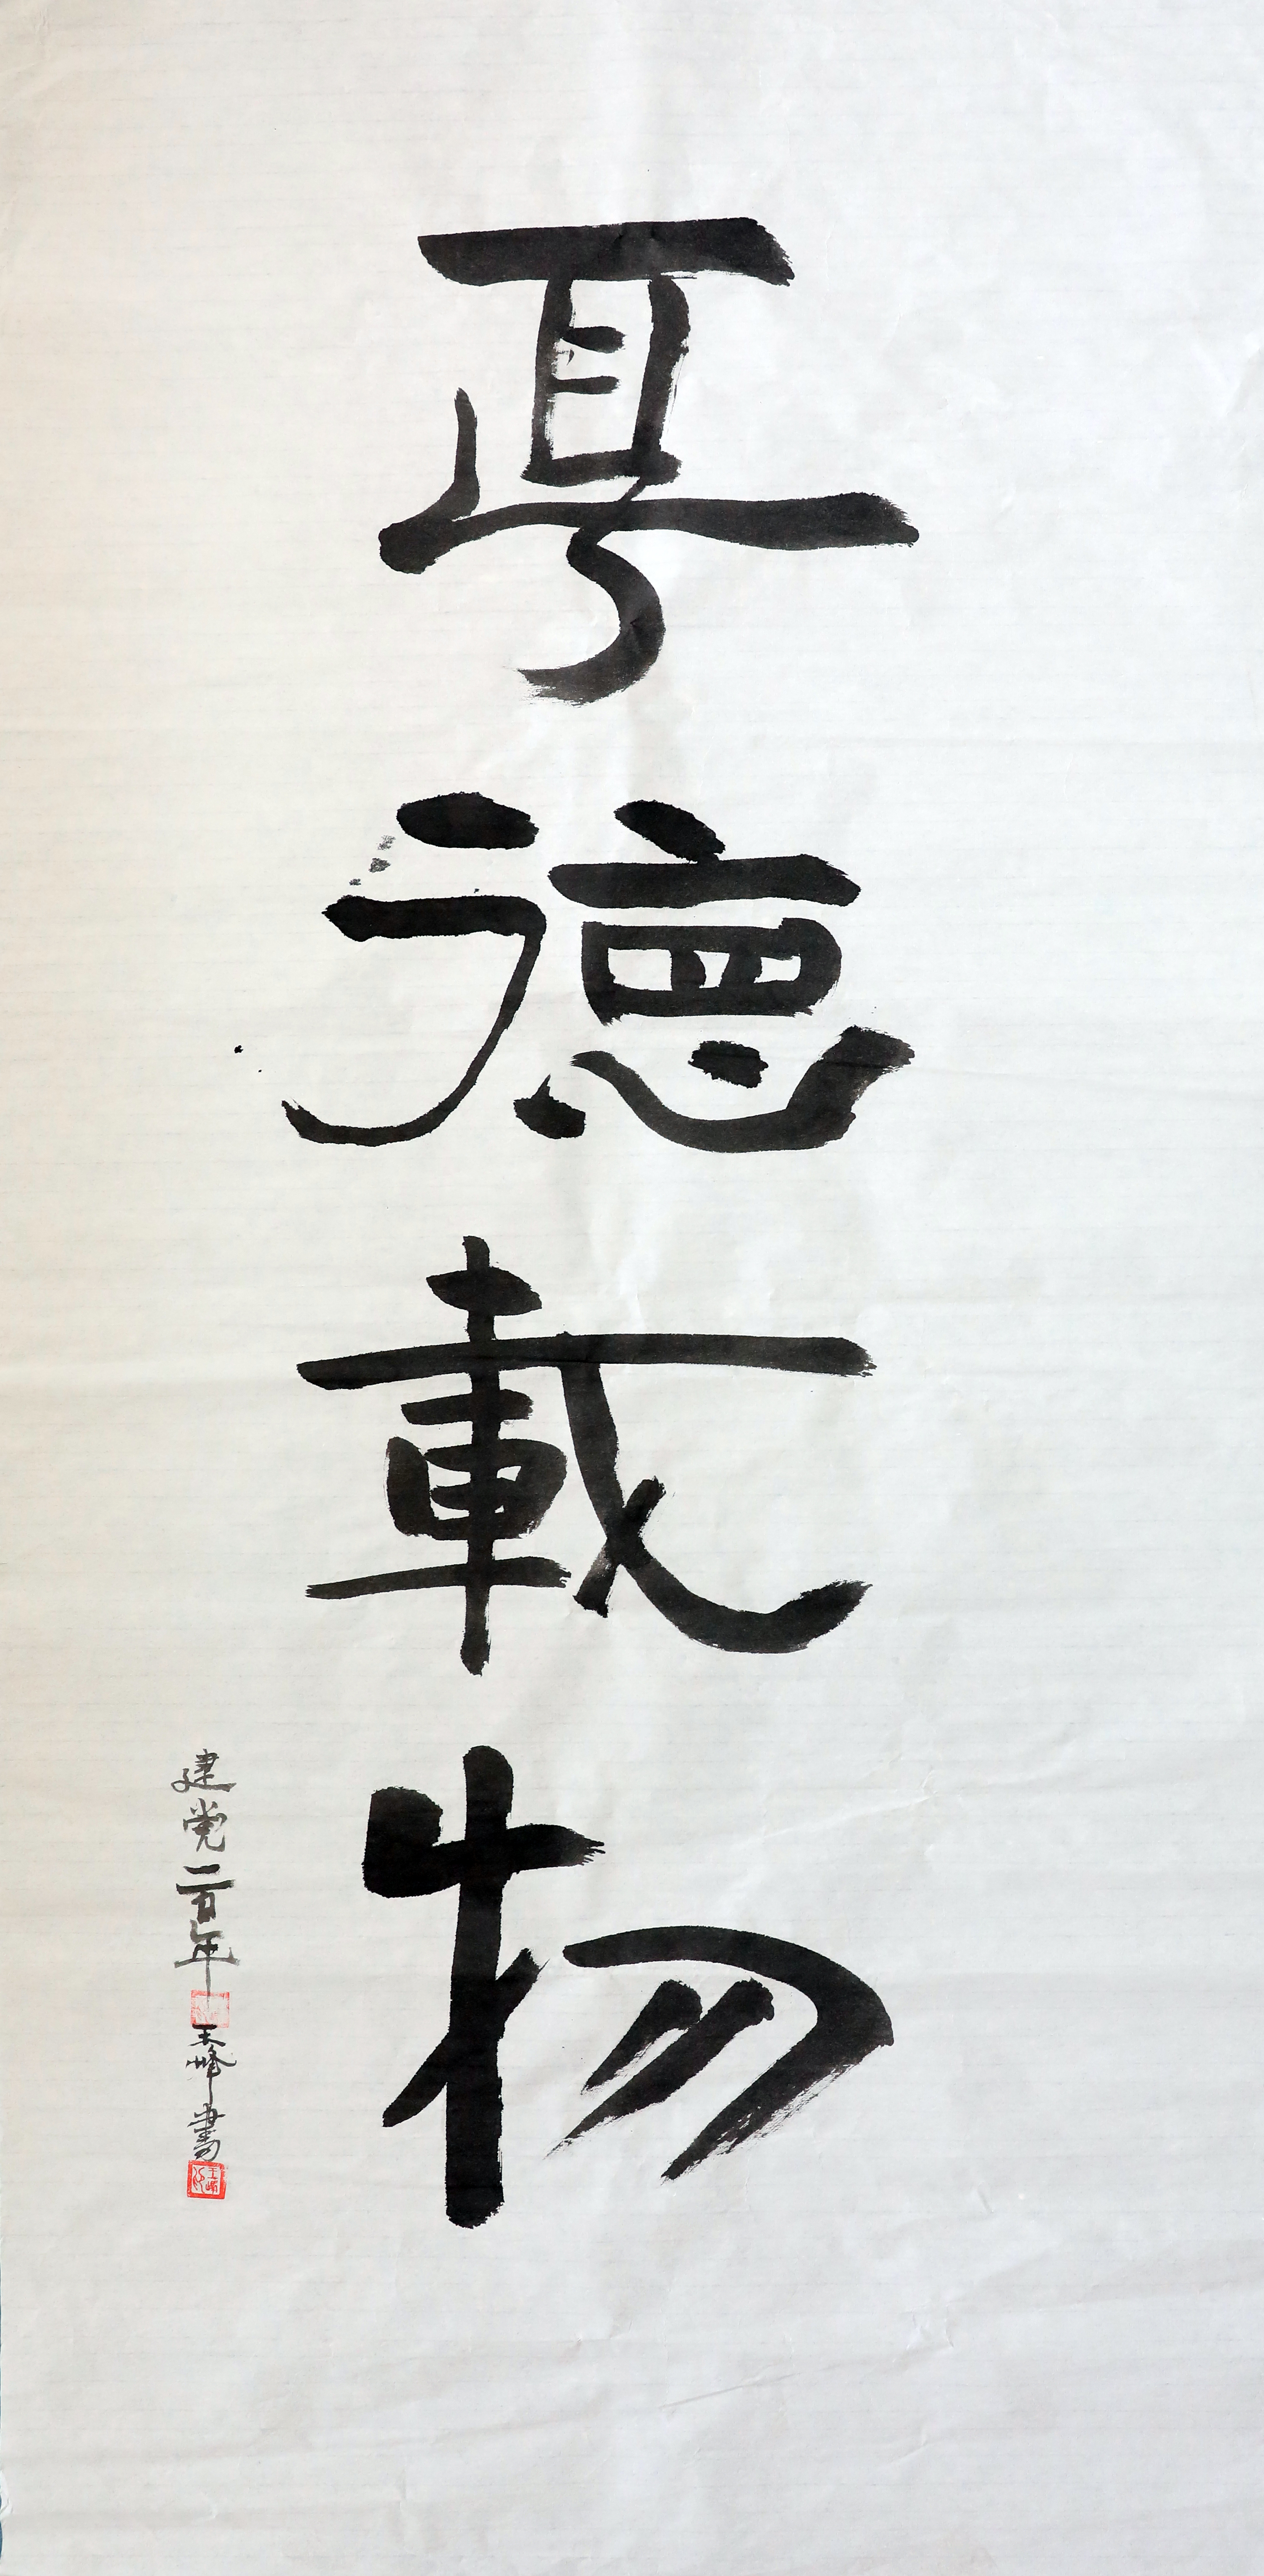 厚德載物
建党一百年 王峰書